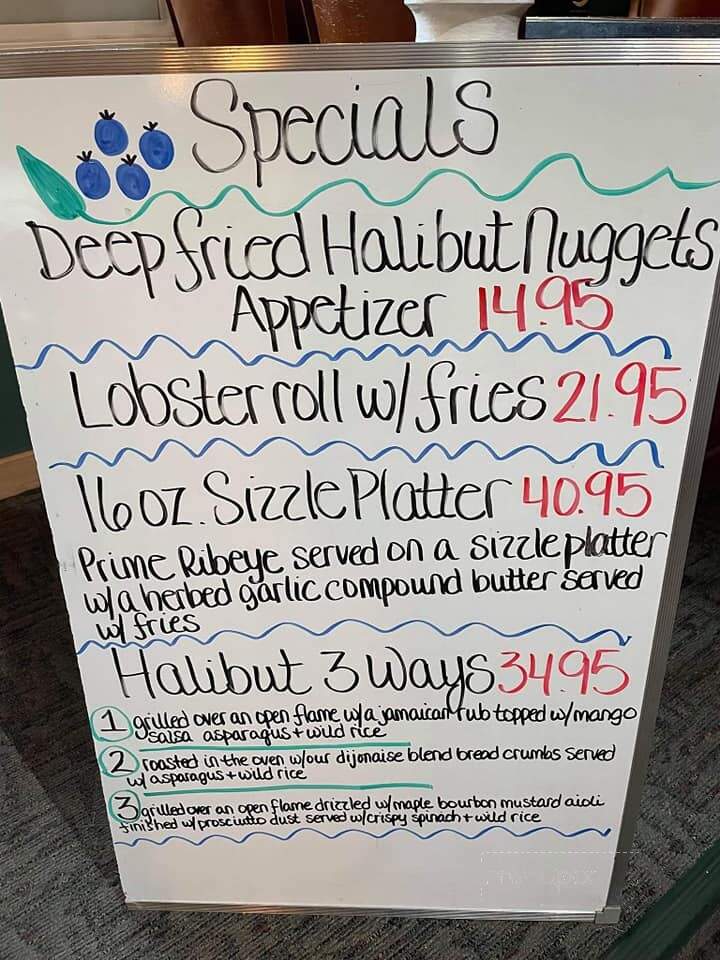 Specials
Deep fried Halibut Nuggets
Appetizer 14.95
Lobster roll w/ fries 21.95
16 oz. Sizzle Platter 40.95
Prime Ribeye served on a sizzle platter
w/ a herbed garlic compound butter served
w/ fries
Halibut 3 Ways 34.95
1 grilled over an open flame w/ a jamaican rub topped w/ mango
salsa asparagus + wild rice
2 roasted in the oven w/ our dijonaise blend bread crumbs served
w/ asparagus + wild rice
3 grilled over an open flame drizzled w/ maple bourbon mustard aioli
finished w/ prosciutto dust served w/ crispy spinach + wild rice